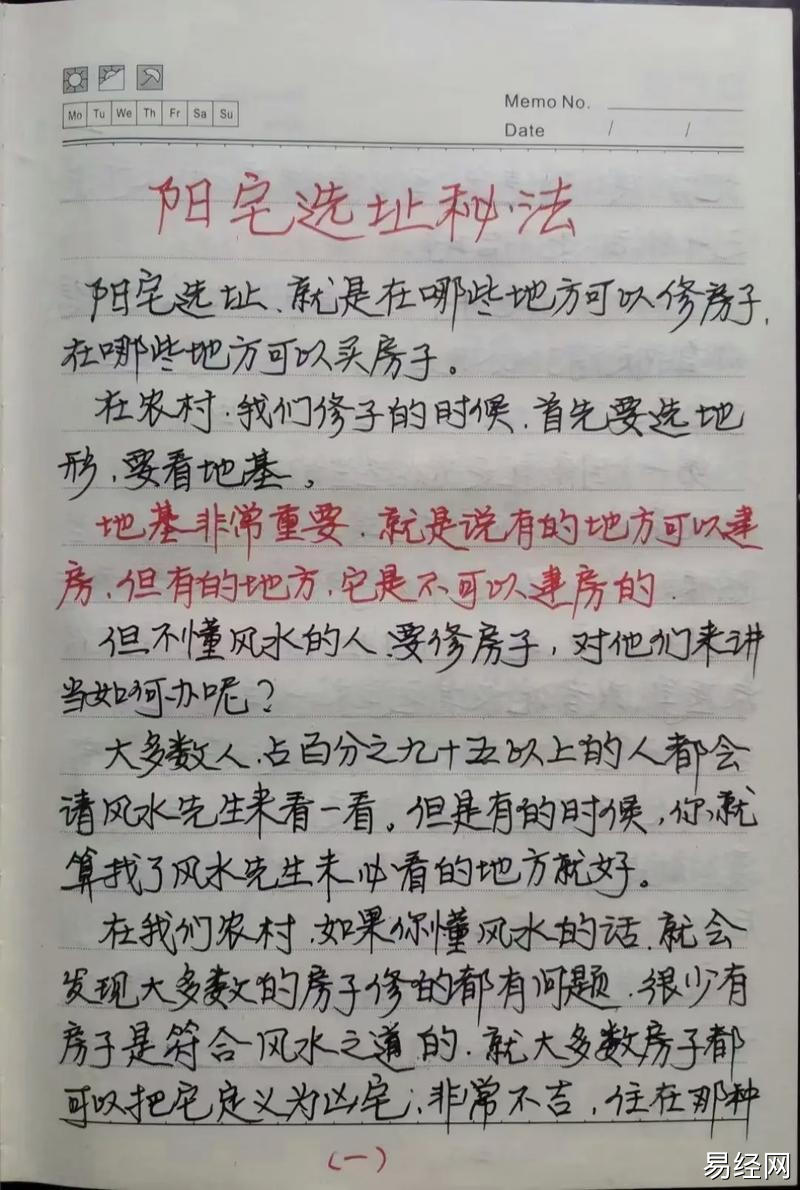 Mo Tu We Th Fr Sa Su
Memo No.
Date / /
阳宅选址秘法
阳宅选址、就是在哪些地方可以修房子,
在哪些地方可以买房子。
在农村.我们修子的时候.首先要选地
形,要看地基。
地基非常重要.就是说有的地方可以建
房,但有的地方,它是不可以建房的.
但不懂风水的人.要修房子,对他们来讲
当如何办呢?
大多数人.占百分之九十五以上的人都会
请风水先生来看一看。但是有的时候,你就
算找了风水先生未必看的地方就好。
在我们农村.如果你懂风水的话.就会
发现大多数的房子修的都有问题.很少有
房子是符合风水之道的.就大多数房子都
可以把它定义为凶宅;非常不吉,住在那种
(一)
易经网